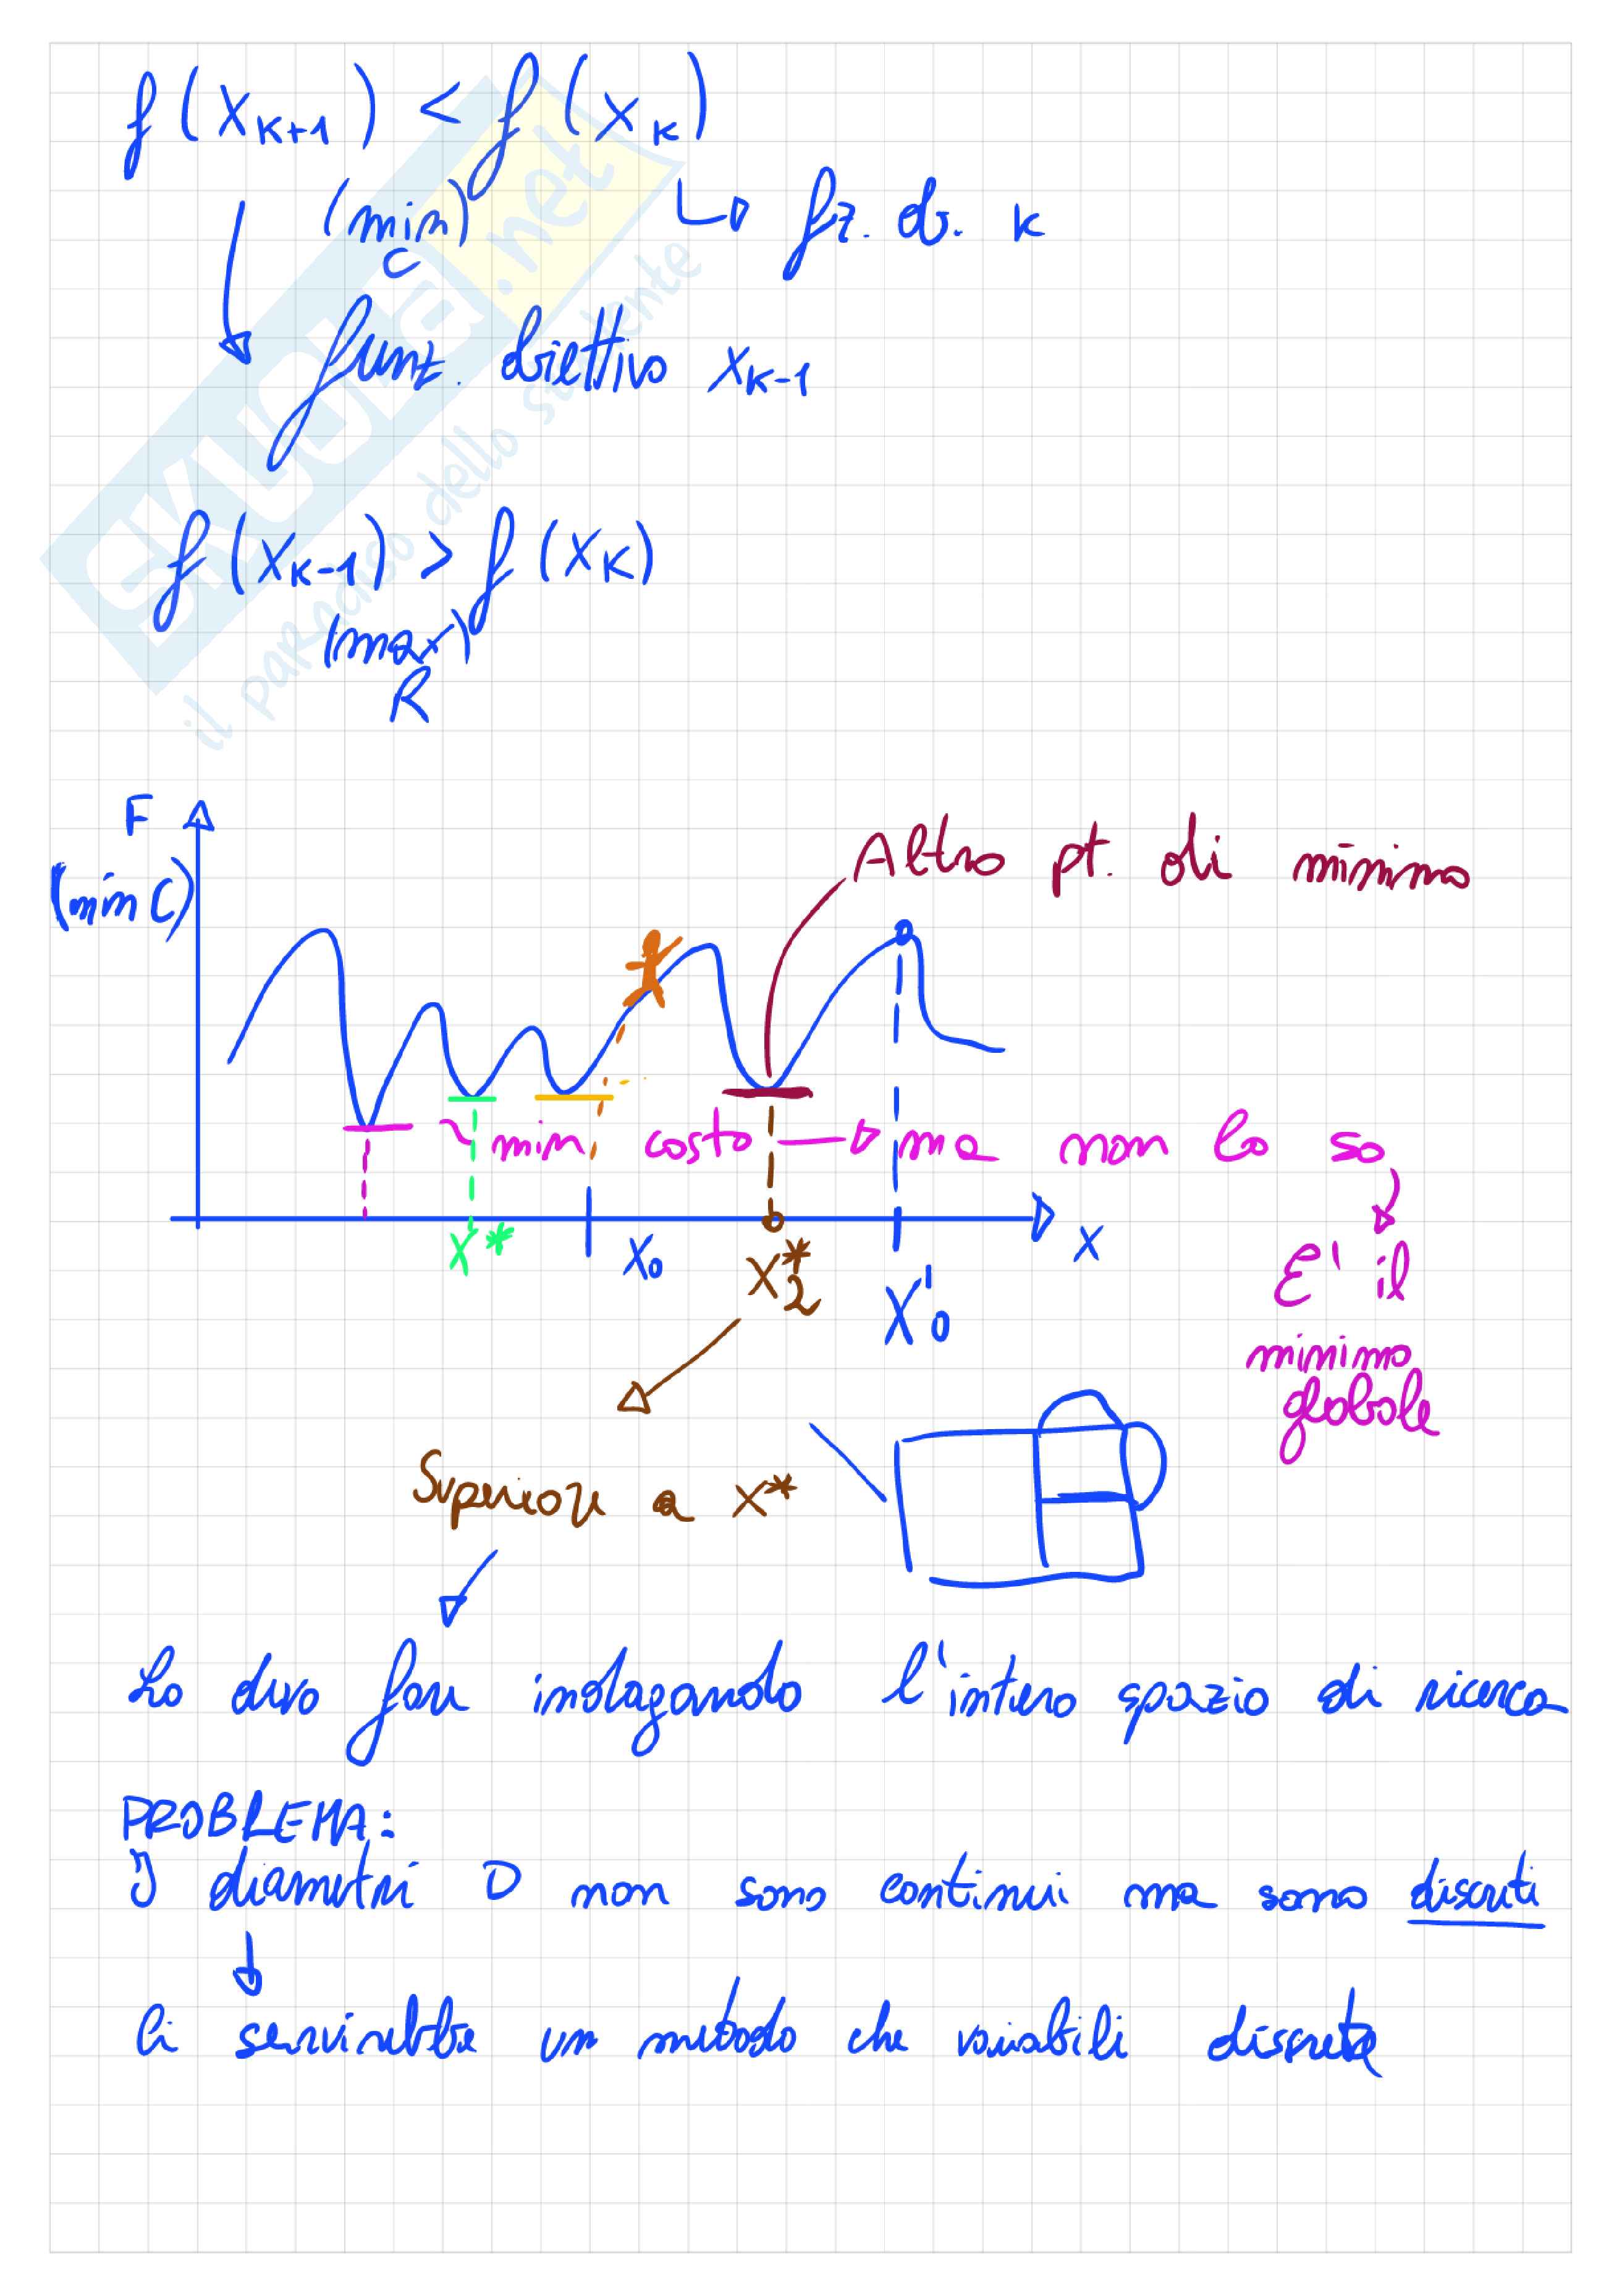 f(X_{K+1}) < f(X_K)
(min) C
fz. ob. K
funz. obiettivo X_{K-1}
f(X_{K-1}) > f(X_K)
(max) R
SKUOLA.net
il paradiso dello studente
F
(min C)
Altro pt. di minimo
min costo → ma non lo so
X* X_0 X_2^* X_0' X
E' il
minimo
globale
Superiore a X*
Lo devo fare indagando l'intero spazio di ricerca
PROBLEMA:
I diametri D non sono continui ma sono discreti
Ci servirebbe un metodo che variabili discrete